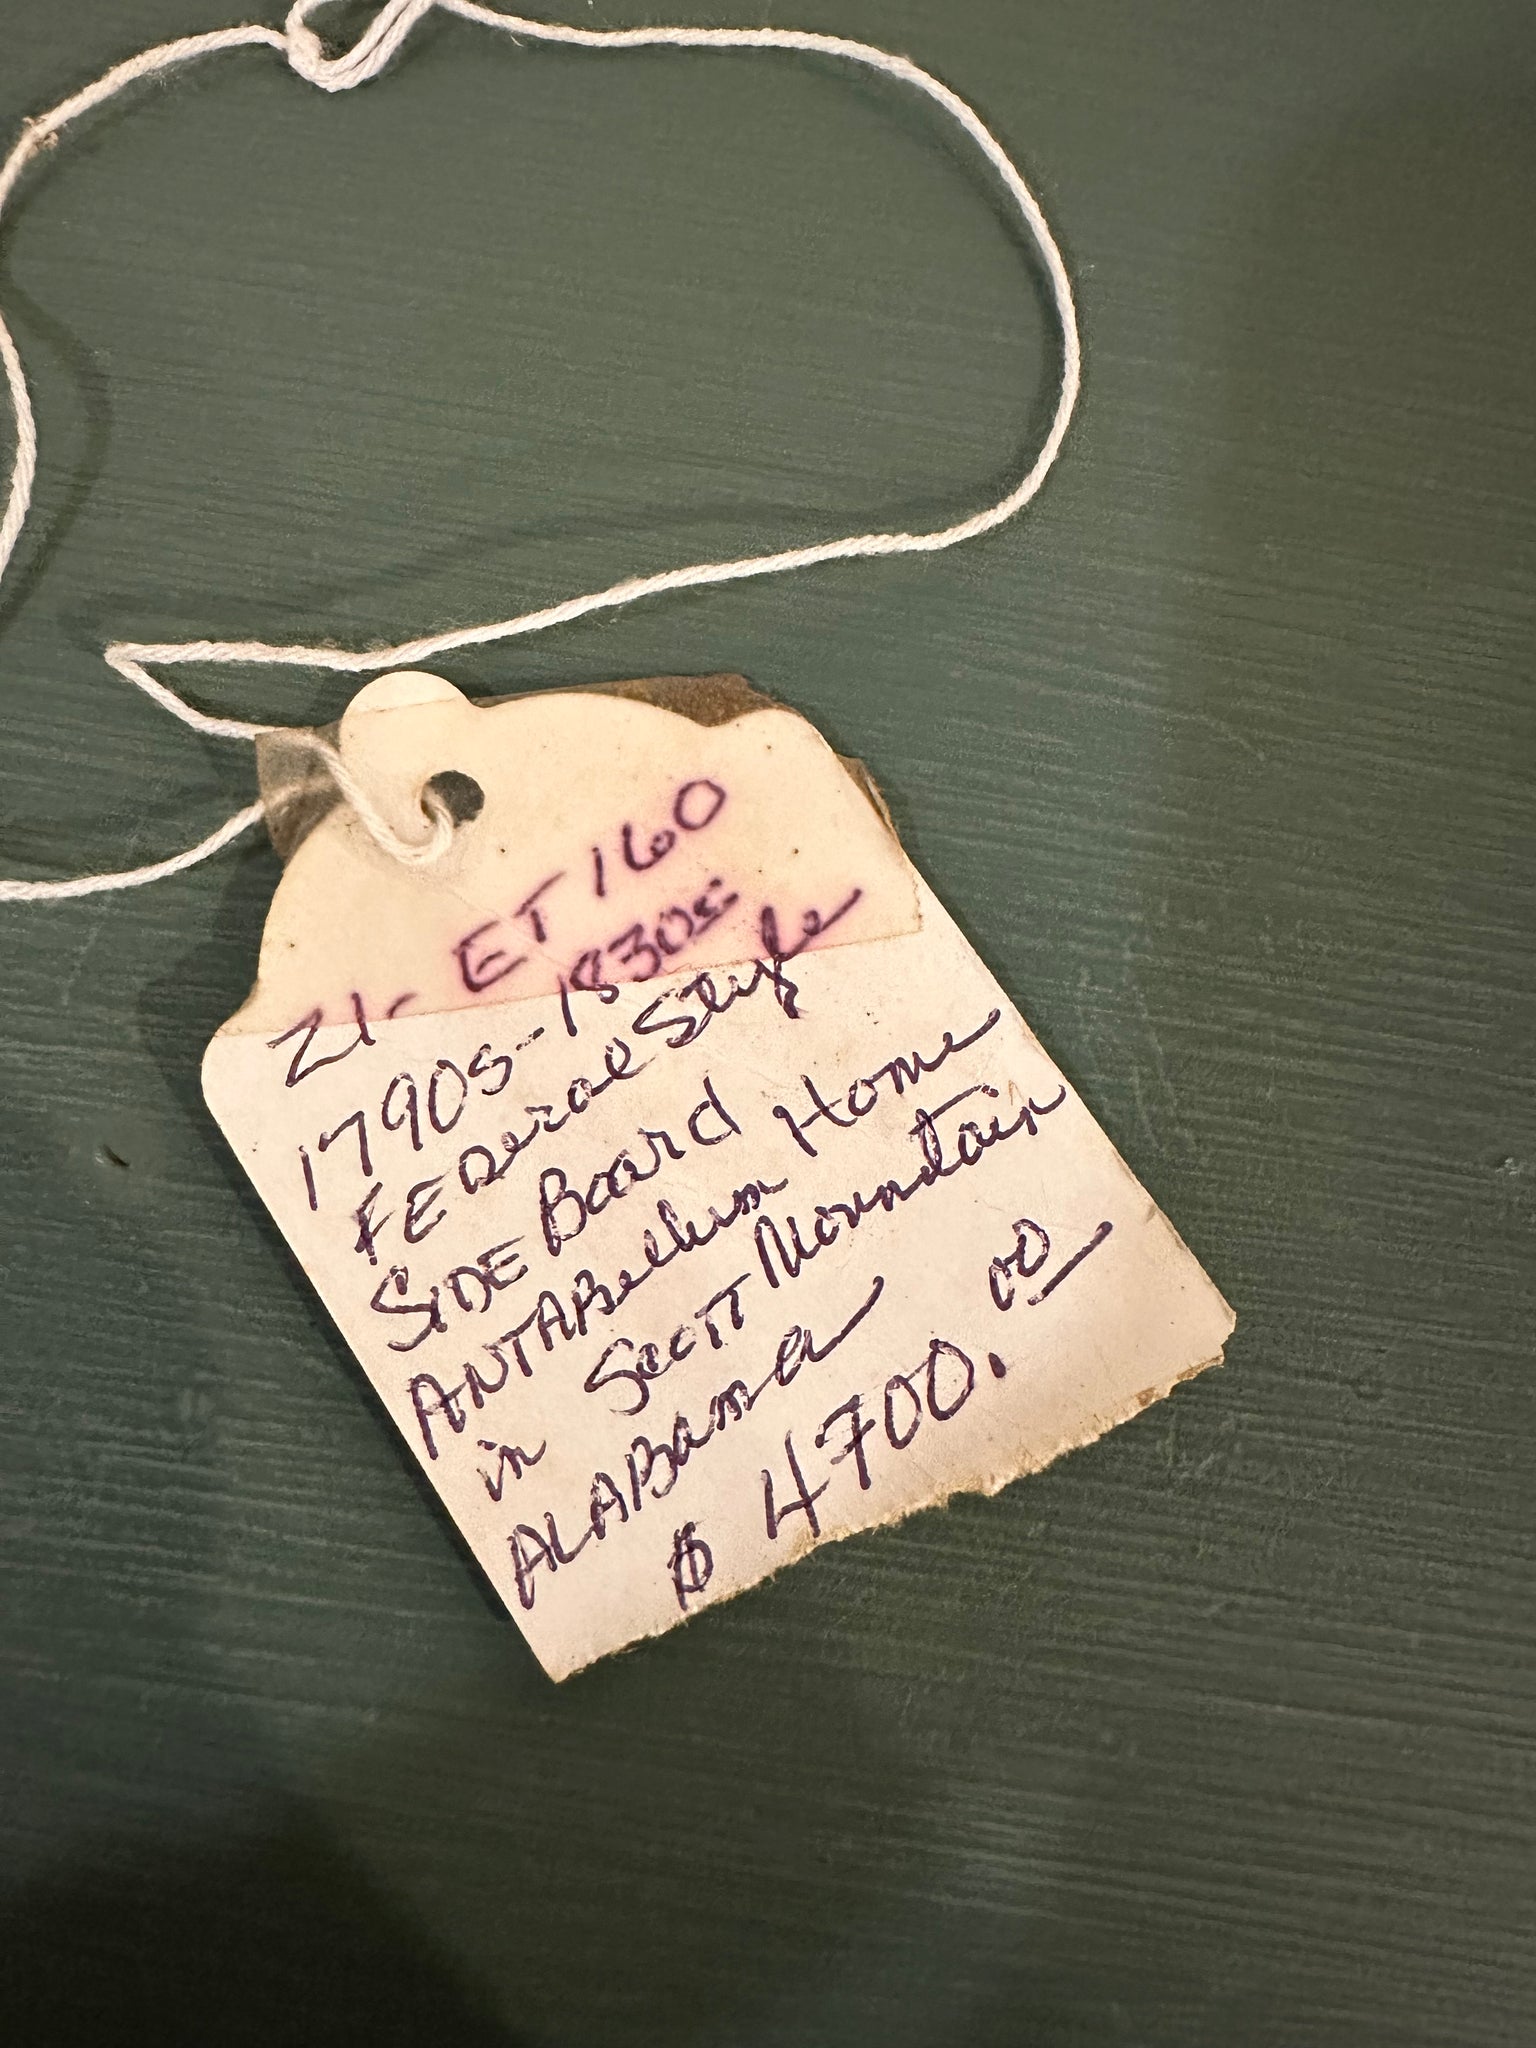 Z1- ET 160
1790s-1830s
FEDeral Style
SIDE Board
ANTABellum Home
in Scott Mountain
ALABama
$ 4700.00